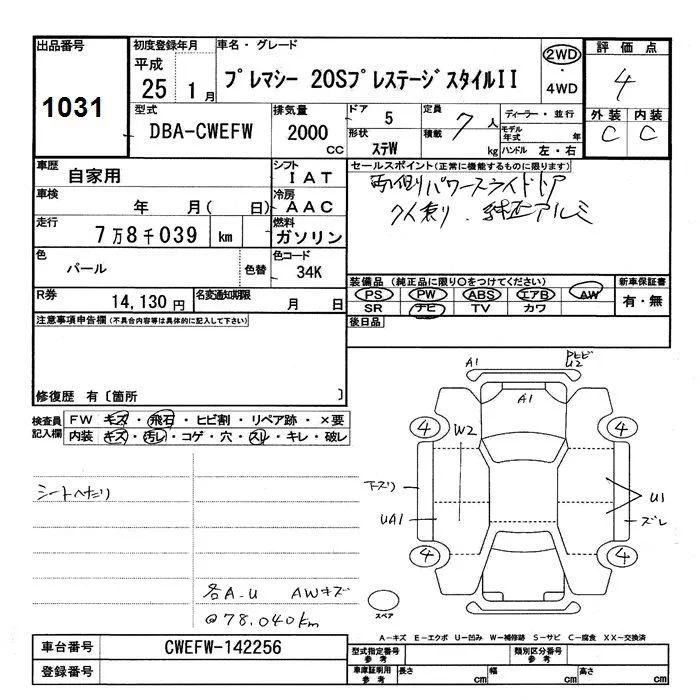 出品番号 初度登録年月 車名・グレード 2WD・4WD 評価点
1031 平成25 1月 プレマシー 20SプレステージスタイルII 4
型式 排気量 ドア 定員 ディーラー・並行 外装 内装
DBA-CWEFW 2000CC 5 7人 モデル年式 年 C C
形状 ステW 積載 kg ハンドル 左・右
車歴 自家用 シフト IAT セールスポイント(正常に機能するものに限ります)
両側パワースライドドア
7人乗り、純正アルミ
車検 年 月( 日) 冷房 AAC
走行 7万8千039 km 燃料 ガソリン
色 パール 色替 色コード 34K
装備品 (純正品に限り○をつけてください) 新車保証書
PS PW ABS エアB AW 有・無
SR ナビ TV カワ
R券 14,130円 名変通知期限 月 日
後日品
注意事項申告欄(不具合内容等は具体的に記入して下さい)
修復歴 有〔箇所 〕
検査員記入欄
FW キズ・飛石・ヒビ割・リペア跡・×要
内装 キズ・汚レ・コゲ・穴・スレ・キレ・破レ
シートヘタリ
各A-U AWキズ
@78,040km
A1 U2
A1
4 4
W2
下スリ U1
UA1 ズレ
4 4
スペア
A-キズ E-エクボ U-凹み W-補修跡 S-サビ C-腐食 XX-交換済
車台番号 CWEFW-142256 型式指定番号 参考 類別区分番号 参考
登録番号 車庫証明用 参考 長さ cm 幅 cm 高さ cm